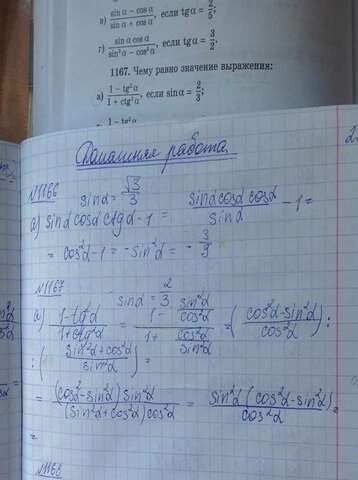 в) (sin α − cos α)/(sin α + cos α), если tg α = 2/5;
г) (sin α cos α)/(sin² α − cos² α), если tg α = 3/2.
1167. Чему равно значение выражения:
а) (1 − tg² α)/(1 + ctg² α), если sin α = 2/3;
1 − tg² α
Домашняя работа
№1166
sinα = √3/3
а) sinα cosα ctgα − 1 = (sinα cosα cosα)/sinα − 1 =
= cos²α − 1 = −sin²α = −3/9
№1167
sinα = 2/3
а) (1 − tg²α)/(1 + ctg²α) = (1 − sin²α/cos²α)/(1 + cos²α/sin²α) = ((cos²α − sin²α)/cos²α) :
: ((sin²α + cos²α)/sin²α) =
= ((cos²α − sin²α) sin²α)/((sin²α + cos²α) cos²α) = (sin²α (cos²α − sin²α))/cos²α =
=
№1168